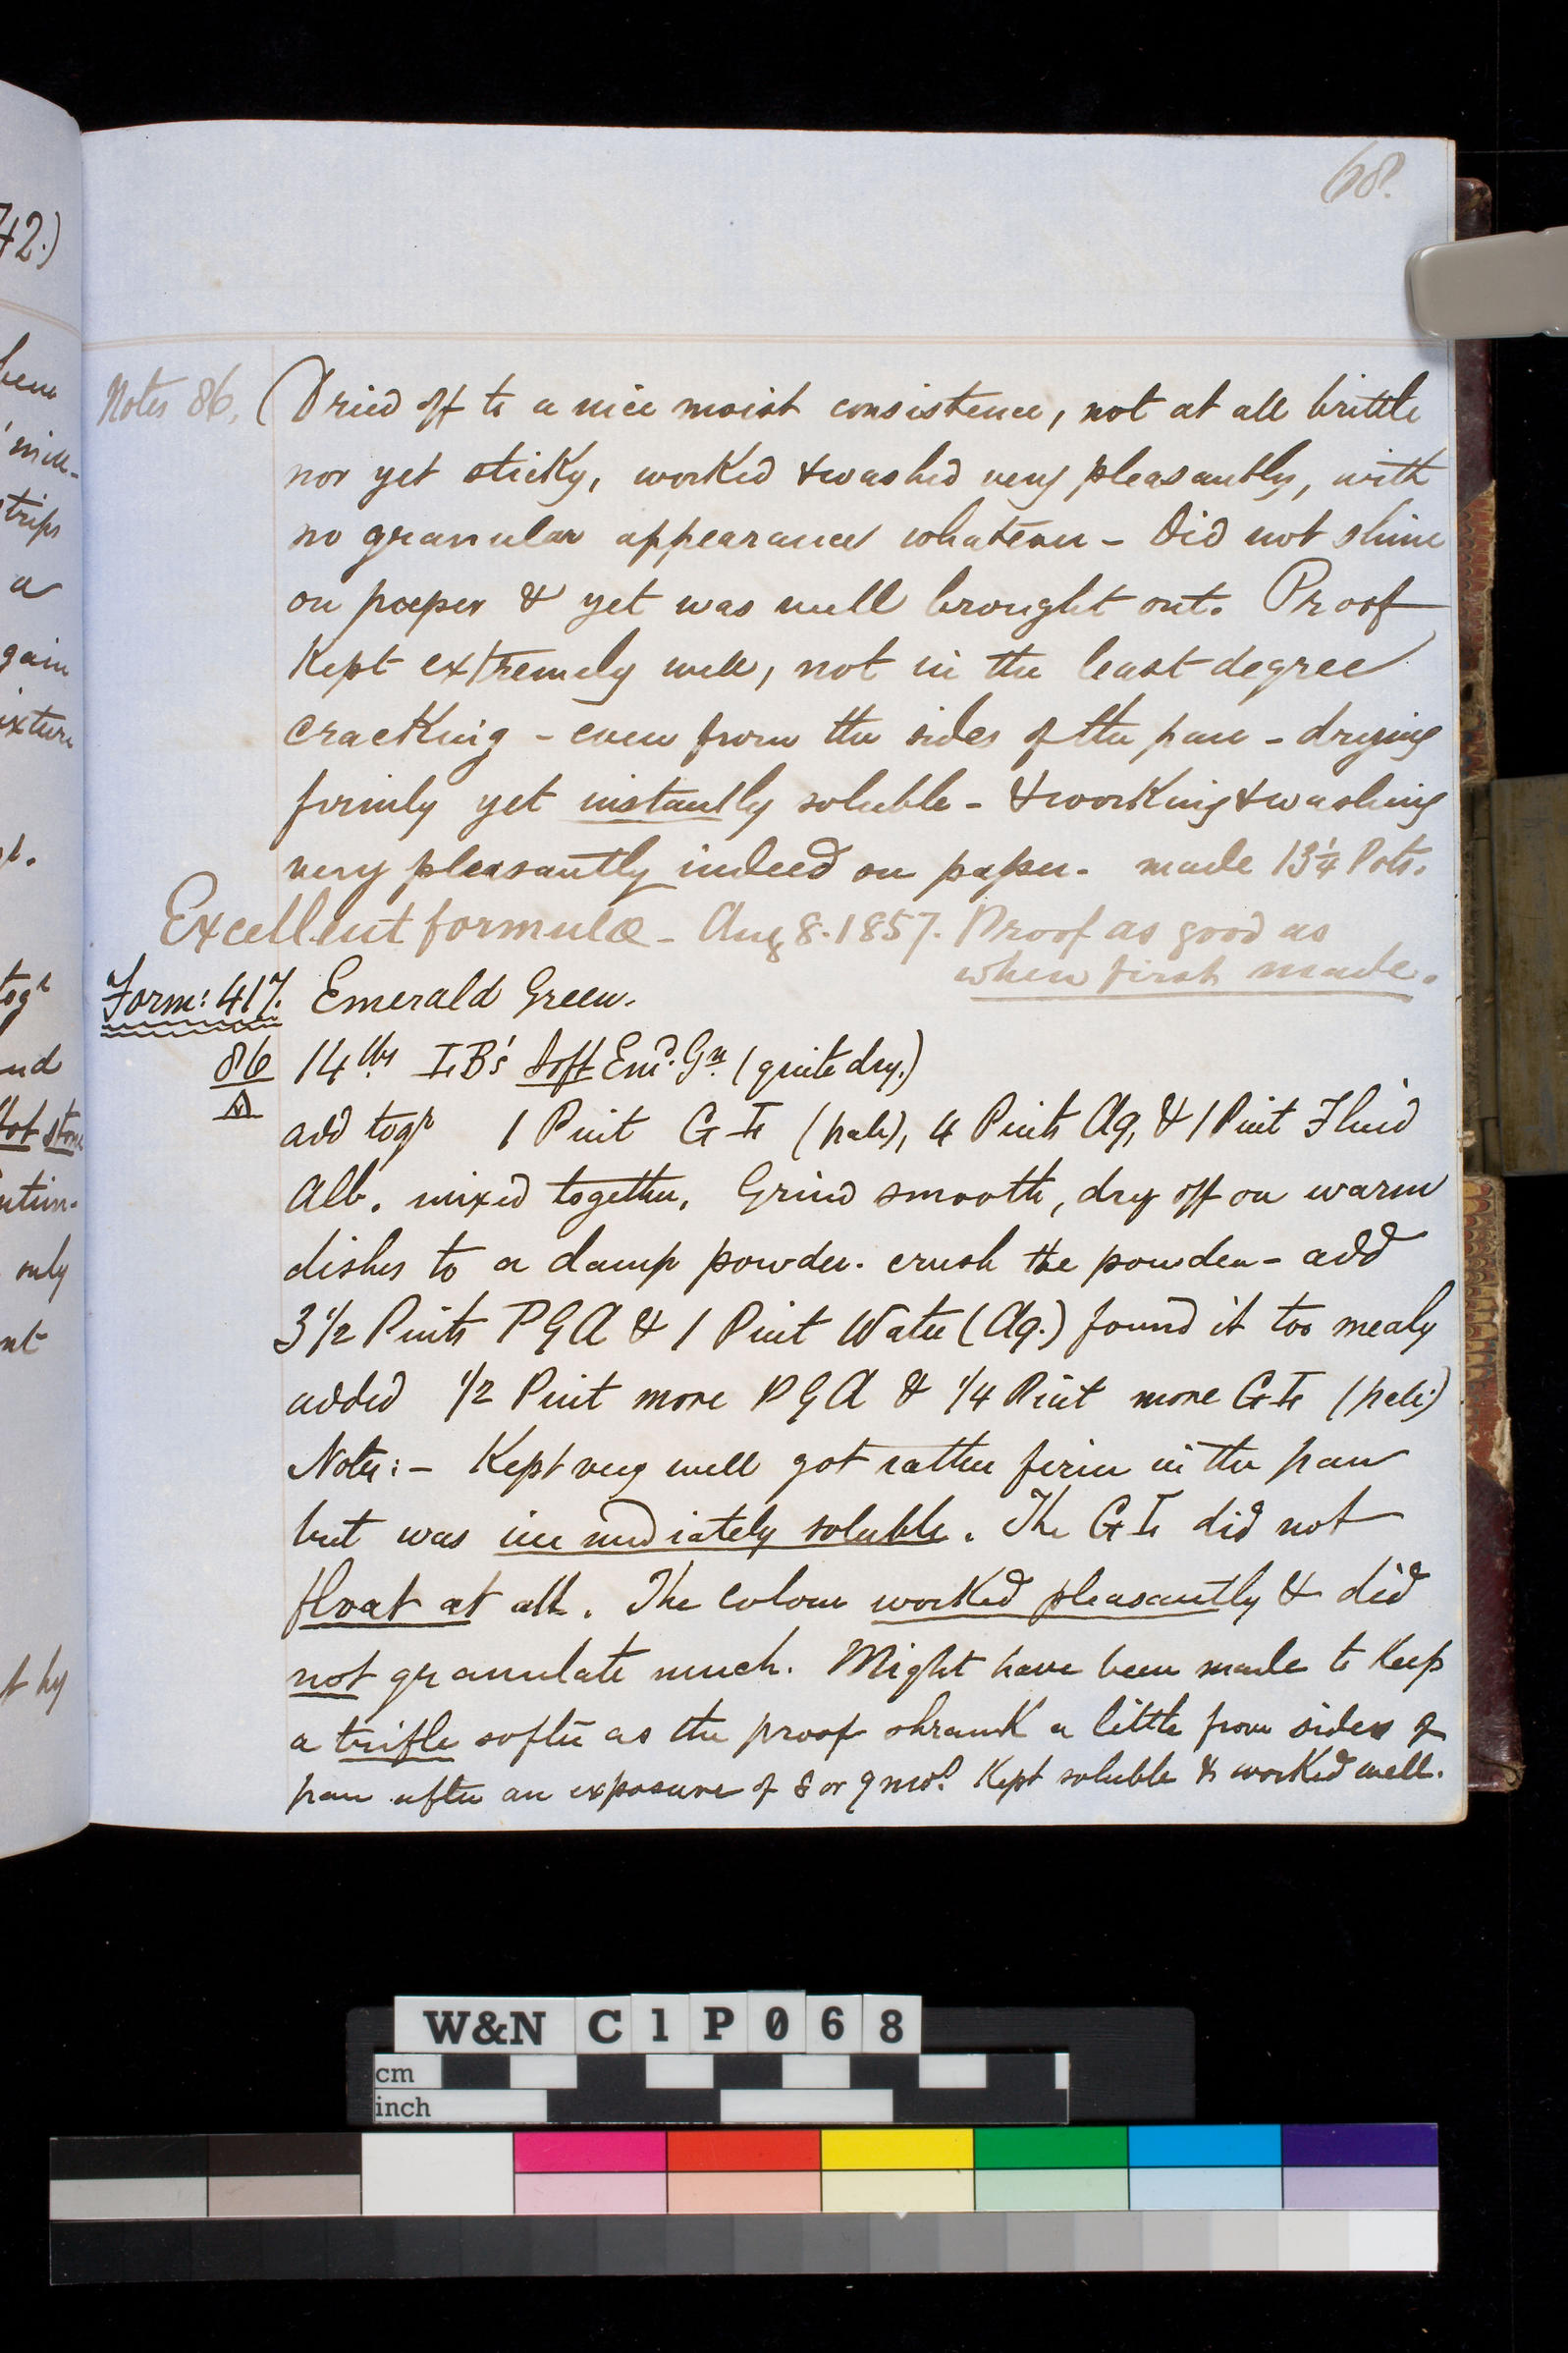 68.
Notes 86. (Dried off to a nice moist consistence, not at all brittle
nor yet sticky, worked & washed very pleasantly, with
no granular appearance whatever - Did not shine
on paper & yet was well brought out. Proof
Kept extremely well, not in the least degree
cracking - even from the sides of the pan - drying
firmly yet instantly soluble - & working & washing
very pleasantly indeed on paper. made 13¼ Pots.
Excellent formula - Aug 8. 1857. Proof as good as
when first made.
Form: 417. Emerald Green.
86 14 lbs I.B's Soft Emd. Gn. (quite dry.)
add togr 1 Pint G (pale), 4 Pints Aq, & 1 Pint Fluid
Alb. mixed together, Grind smooth, dry off on warm
dishes to a damp powder. crush the powder - add
3 1/2 Pints PGA & 1 Pint Water (Aq.) found it too mealy
added 1/2 Pint more PGA & 1/4 Pint more G (pale)
Note: - Kept very well got rather firm in the pan
but was immediately soluble. The G did not
float at all. The colour worked pleasantly & did
not granulate much. Might have been made to keep
a trifle softer as the proof shrank a little from sides of
pan after an exposure of 8 or 9 mos. Kept soluble & worked well.
42.)
trips
a
gain
only
by
W&N C1P068
cm
inch